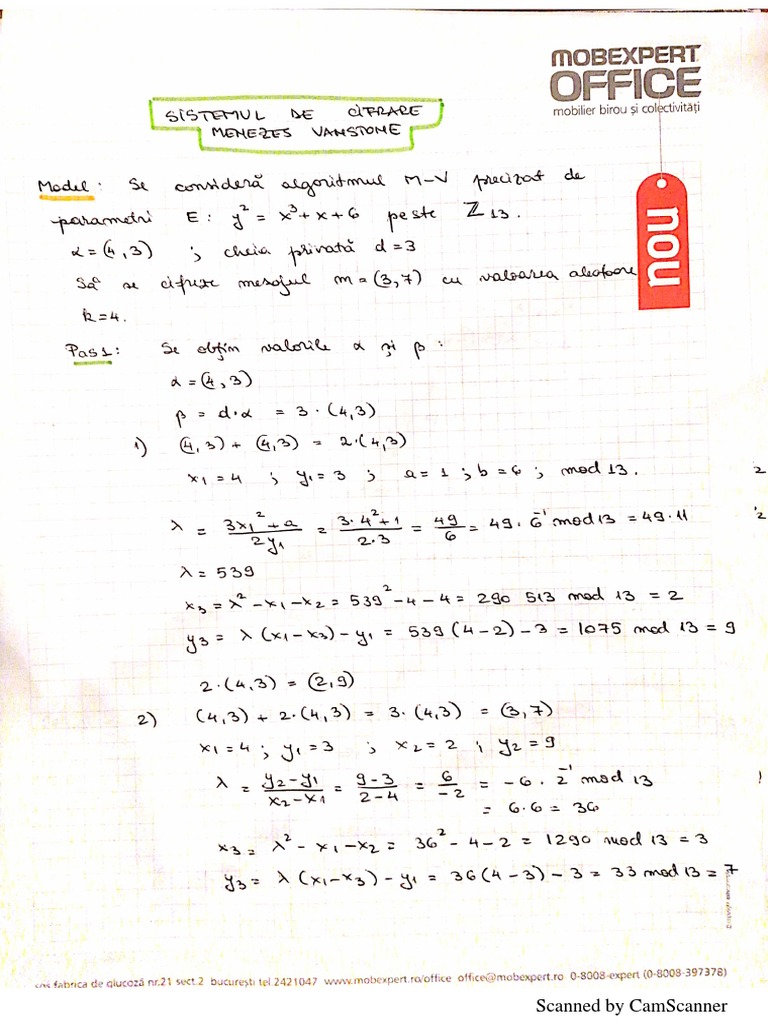 MOBEXPERT
OFFICE
mobilier birou și colectivități
nou
SISTEMUL DE CIFRARE
MENEZES VANSTONE
Model: Se consideră algoritmul M-V precizat de
parametri E: y² = x³ + x + 6 peste ℤ₁₃.
α = (4,3) ; cheia privată d = 3
Să se cifreze mesajul m = (3,7) cu valoarea aleatoare
k = 4.
Pas 1: Se obțin valorile α și β :
α = (4,3)
β = d·α = 3·(4,3)
1) (4,3) + (4,3) = 2·(4,3)
x₁ = 4 ; y₁ = 3 ; a = 1 ; b = 6 ; mod 13.
λ = (3x₁² + a)/(2y₁) = (3·4² + 1)/(2·3) = 49/6 = 49 · 6⁻¹ mod 13 = 49·11
λ = 539
x₃ = λ² - x₁ - x₂ = 539² - 4 - 4 = 290 513 mod 13 = 2
y₃ = λ (x₁ - x₃) - y₁ = 539 (4 - 2) - 3 = 1075 mod 13 = 9
2·(4,3) = (2,9)
2) (4,3) + 2·(4,3) = 3·(4,3) = (3,7)
x₁ = 4 ; y₁ = 3 ; x₂ = 2 ; y₂ = 9
λ = (y₂ - y₁)/(x₂ - x₁) = (9 - 3)/(2 - 4) = 6/-2 = -6 · 2⁻¹ mod 13
= 6·6 = 36
x₃ = λ² - x₁ - x₂ = 36² - 4 - 2 = 1290 mod 13 = 3
y₃ = λ (x₁ - x₃) - y₁ = 36 (4 - 3) - 3 = 33 mod 13 = 7
fabrica de glucoză nr.21 sect.2 bucurești tel.2421047 www.mobexpert.ro/office office@mobexpert.ro 0-8008-expert (0-8008-397378)
Scanned by CamScanner